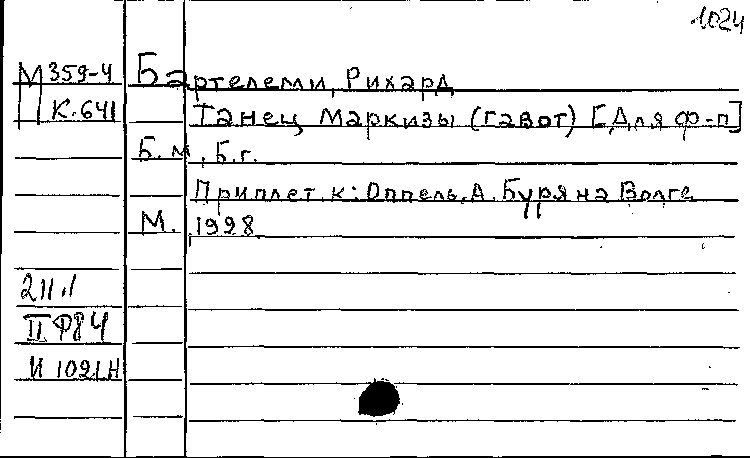 1024
М 359-4 Бартелеми, Рихард
К.641 Танец Маркизы (гавот) [Для ф-п]
Б.м., Б.г.
Приплет. к: Оппель, А. Буря на Волге
М. 1928
211.1
II Ф84
И 1091н